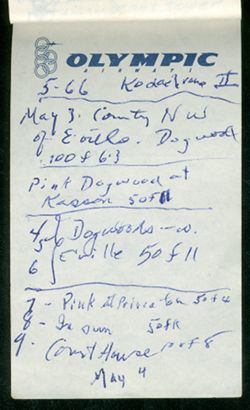 OLYMPIC
5-66 Kodachrome II
May 3. County NW
of E'ville. Dogwood
100 f 6.3
Pink Dogwood at
Kasson 50 f 11
4 Dogwoods - W.
5
6 E'ville 50 f 11
7 - Pink at 50 f 4
8 - In sun 50 f 11
9 - Court House f 8
May 4